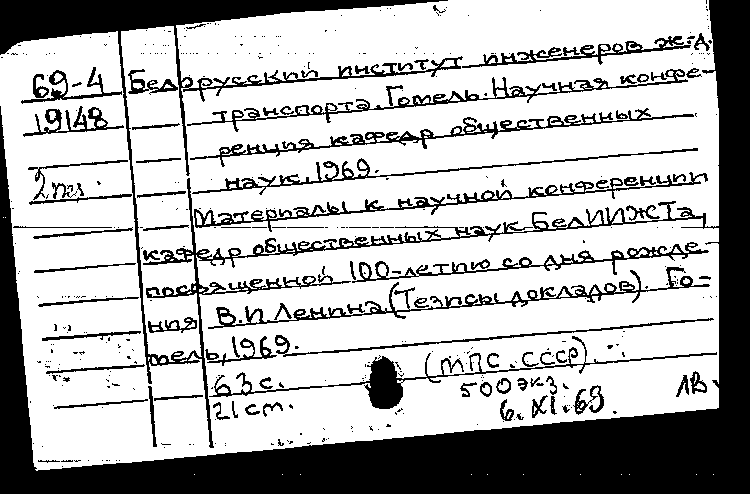 69-4 Белорусский институт инженеров ж.-д.
19148 транспорта. Гомель. Научная конфе-
ренция кафедр общественных
2 экз. наук. 1969.
Материалы к научной конференции
кафедр общественных наук БелИИЖТа,
посвященной 100-летию со дня рожде-
ния В.И Ленина. (Тезисы докладов). Го-
мель, 1969.
63 с. (МПС. СССР).
21 см. 500 экз.
6.XI.69. 1В.